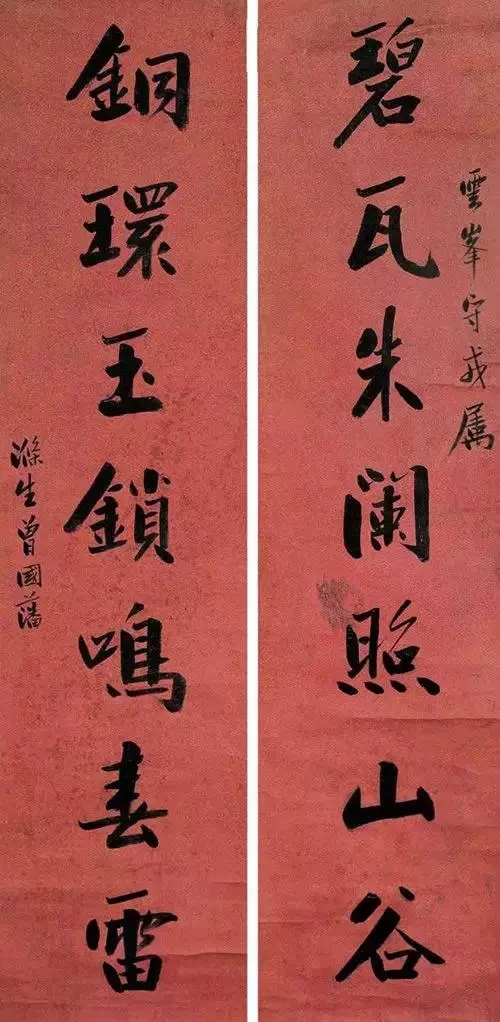 雲峯守戎属
碧瓦朱闌照山谷
銅環玉鎖鳴春雷
滌生曾國藩